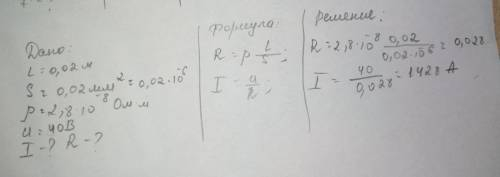 Дано:
L = 0,02 м
S = 0,02 мм² = 0,02·10⁻⁶
ρ = 2,8·10⁻⁸ Ом м
U = 40В
I - ? R - ?
Формула:
R = ρ L/S;
I = U/R;
Решение:
R = 2,8·10⁻⁸ 0,02/0,02·10⁻⁶ = 0,028
I = 40/0,028 = 1428 A